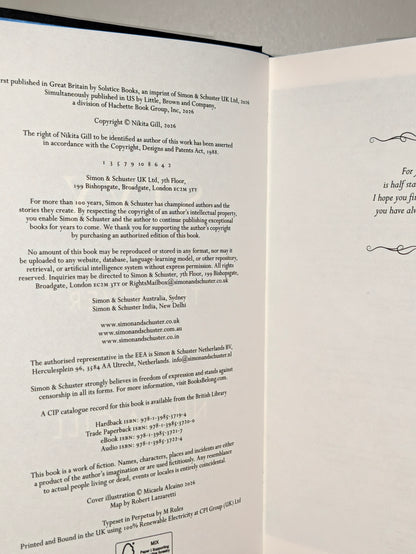 rst published in Great Britain by Solstice Books, an imprint of Simon & Schuster UK Ltd, 2026
Simultaneously published in US by Little, Brown and Company,
a division of Hachette Book Group, Inc, 2026
Copyright © Nikita Gill, 2026
The right of Nikita Gill to be identified as author of this work has been asserted
in accordance with the Copyright, Designs and Patents Act, 1988.
1 3 5 7 9 10 8 6 4 2
Simon & Schuster UK Ltd, 7th Floor,
199 Bishopsgate, Broadgate, London EC2M 3TY
For more than 100 years, Simon & Schuster has championed authors and the
stories they create. By respecting the copyright of an author's intellectual property,
you enable Simon & Schuster and the author to continue publishing exceptional
books for years to come. We thank you for supporting the author's copyright
by purchasing an authorized edition of this book.
No amount of this book may be reproduced or stored in any format, nor may it
be uploaded to any website, database, language-learning model, or other repository,
retrieval, or artificial intelligence system without express permission. All rights
reserved. Inquiries may be directed to Simon & Schuster, 7th Floor, 199 Bishopsgate,
Broadgate, London EC2M 3TY or RightsMailbox@simonandschuster.co.uk
Simon & Schuster Australia, Sydney
Simon & Schuster India, New Delhi
www.simonandschuster.co.uk
www.simonandschuster.com.au
www.simonandschuster.co.in
The authorised representative in the EEA is Simon & Schuster Netherlands BV,
Herculesplein 96, 3584 AA Utrecht, Netherlands. info@simonandschuster.nl
Simon & Schuster strongly believes in freedom of expression and stands against
censorship in all its forms. For more information, visit BooksBelong.com.
A CIP catalogue record for this book is available from the British Library
Hardback ISBN: 978-1-3985-3719-4
Trade Paperback ISBN: 978-1-3985-3720-0
eBook ISBN: 978-1-3985-3721-7
Audio ISBN: 978-1-3985-3722-4
This book is a work of fiction. Names, characters, places and incidents are either
a product of the author's imagination or are used fictitiously. Any resemblance
to actual people living or dead, events or locales is entirely coincidental.
Cover illustration © Micaela Alcaino 2026
Map by Robert Lazzaretti
Typeset in Perpetua by M Rules
Printed and Bound in the UK using 100% Renewable Electricity at CPI Group (UK) Ltd
MIX
Paper | Supporting
For
is half sta
I hope you fin
you have alw